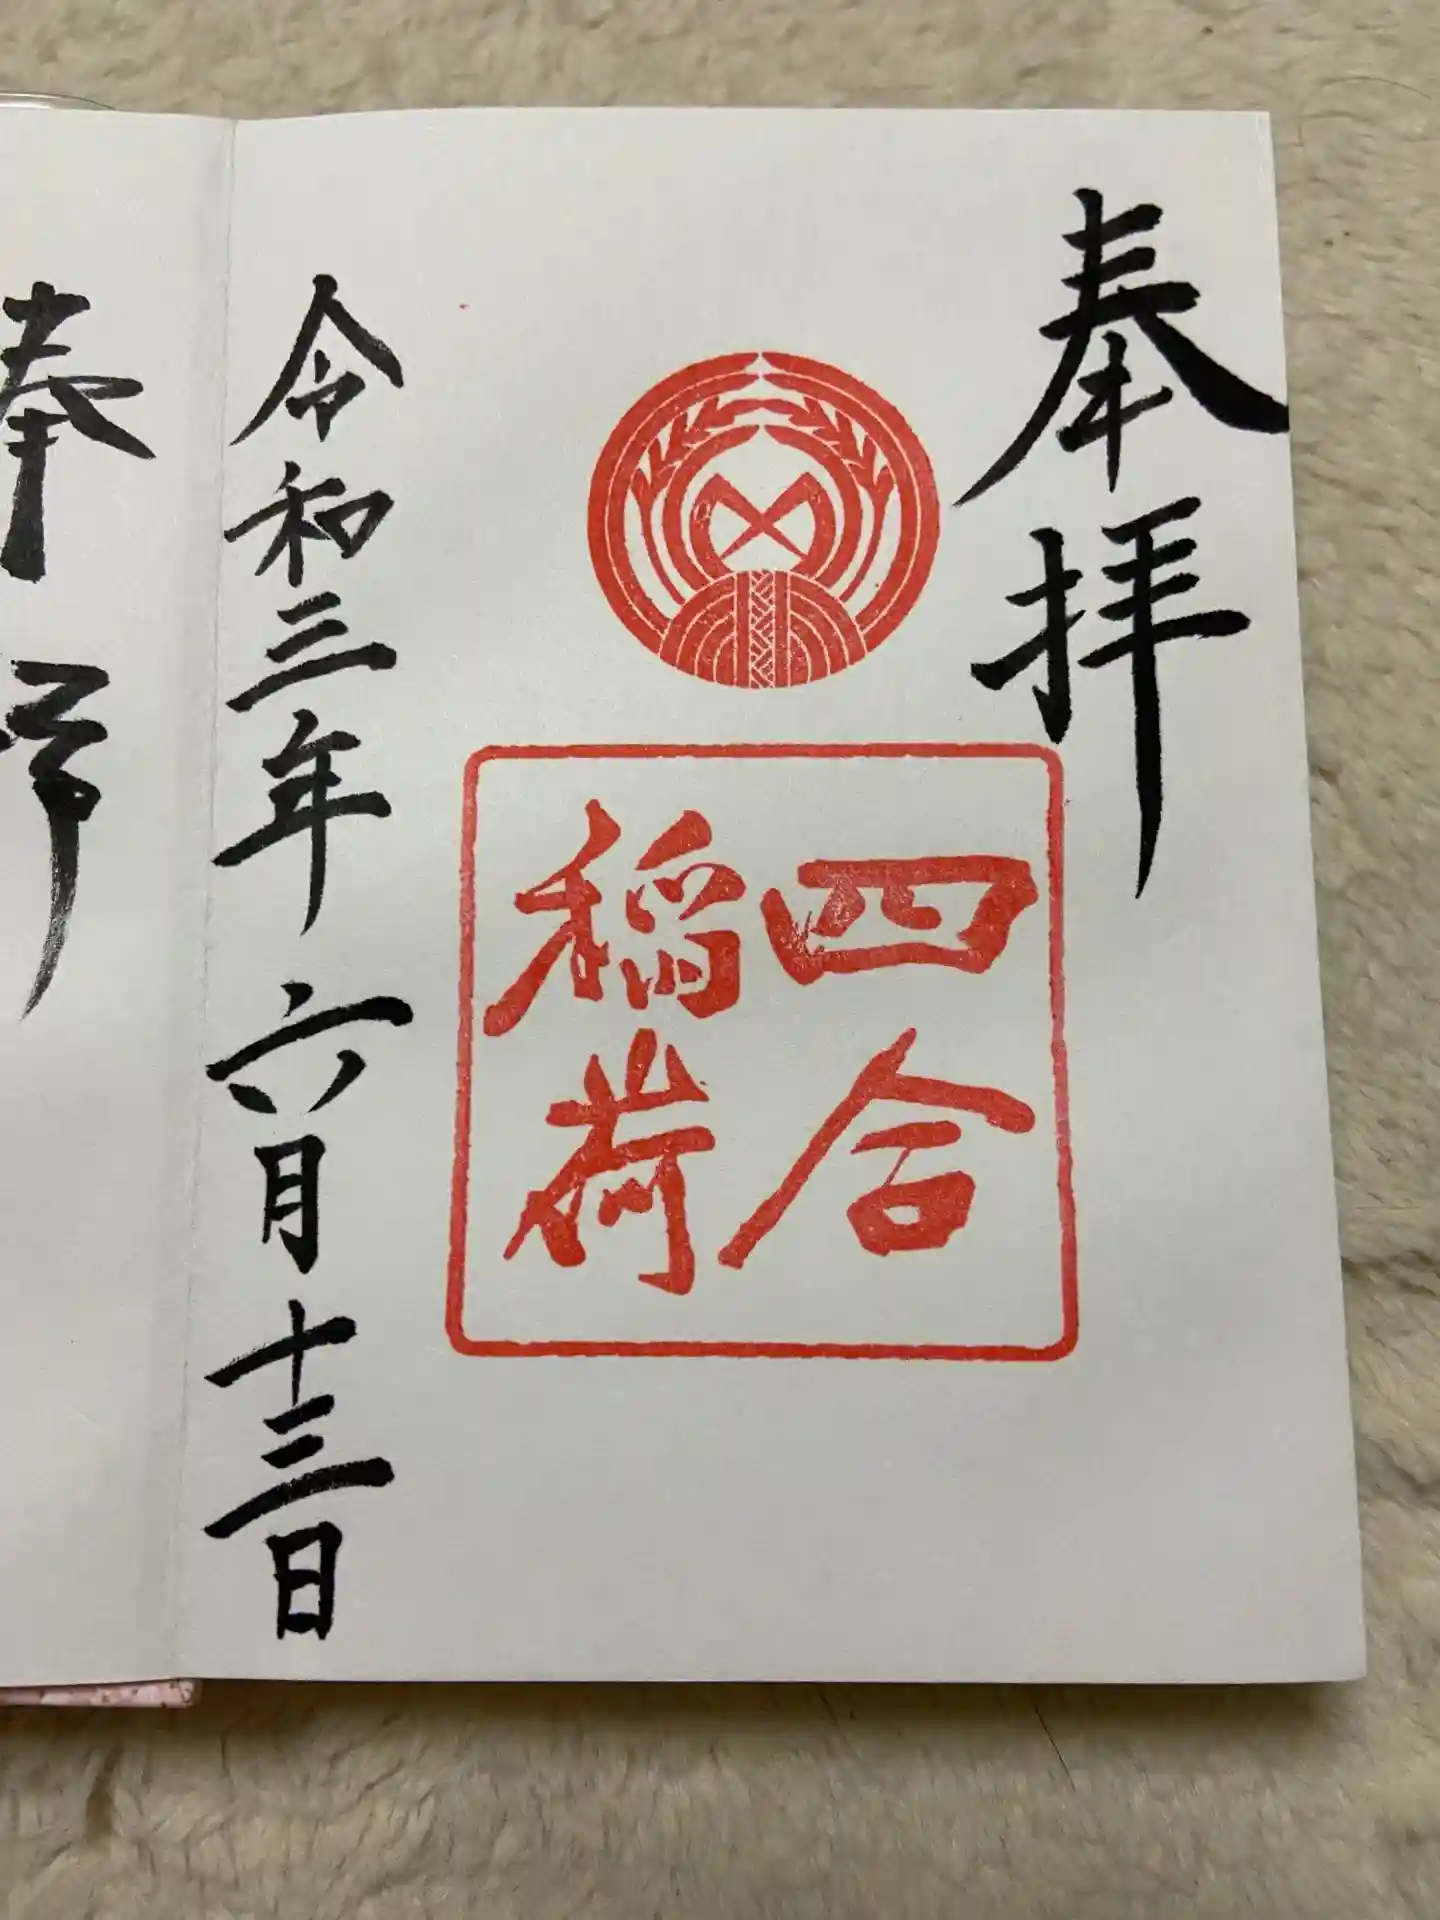 奉拝
四合
稲荷
令和三年六月十三日
奉拝